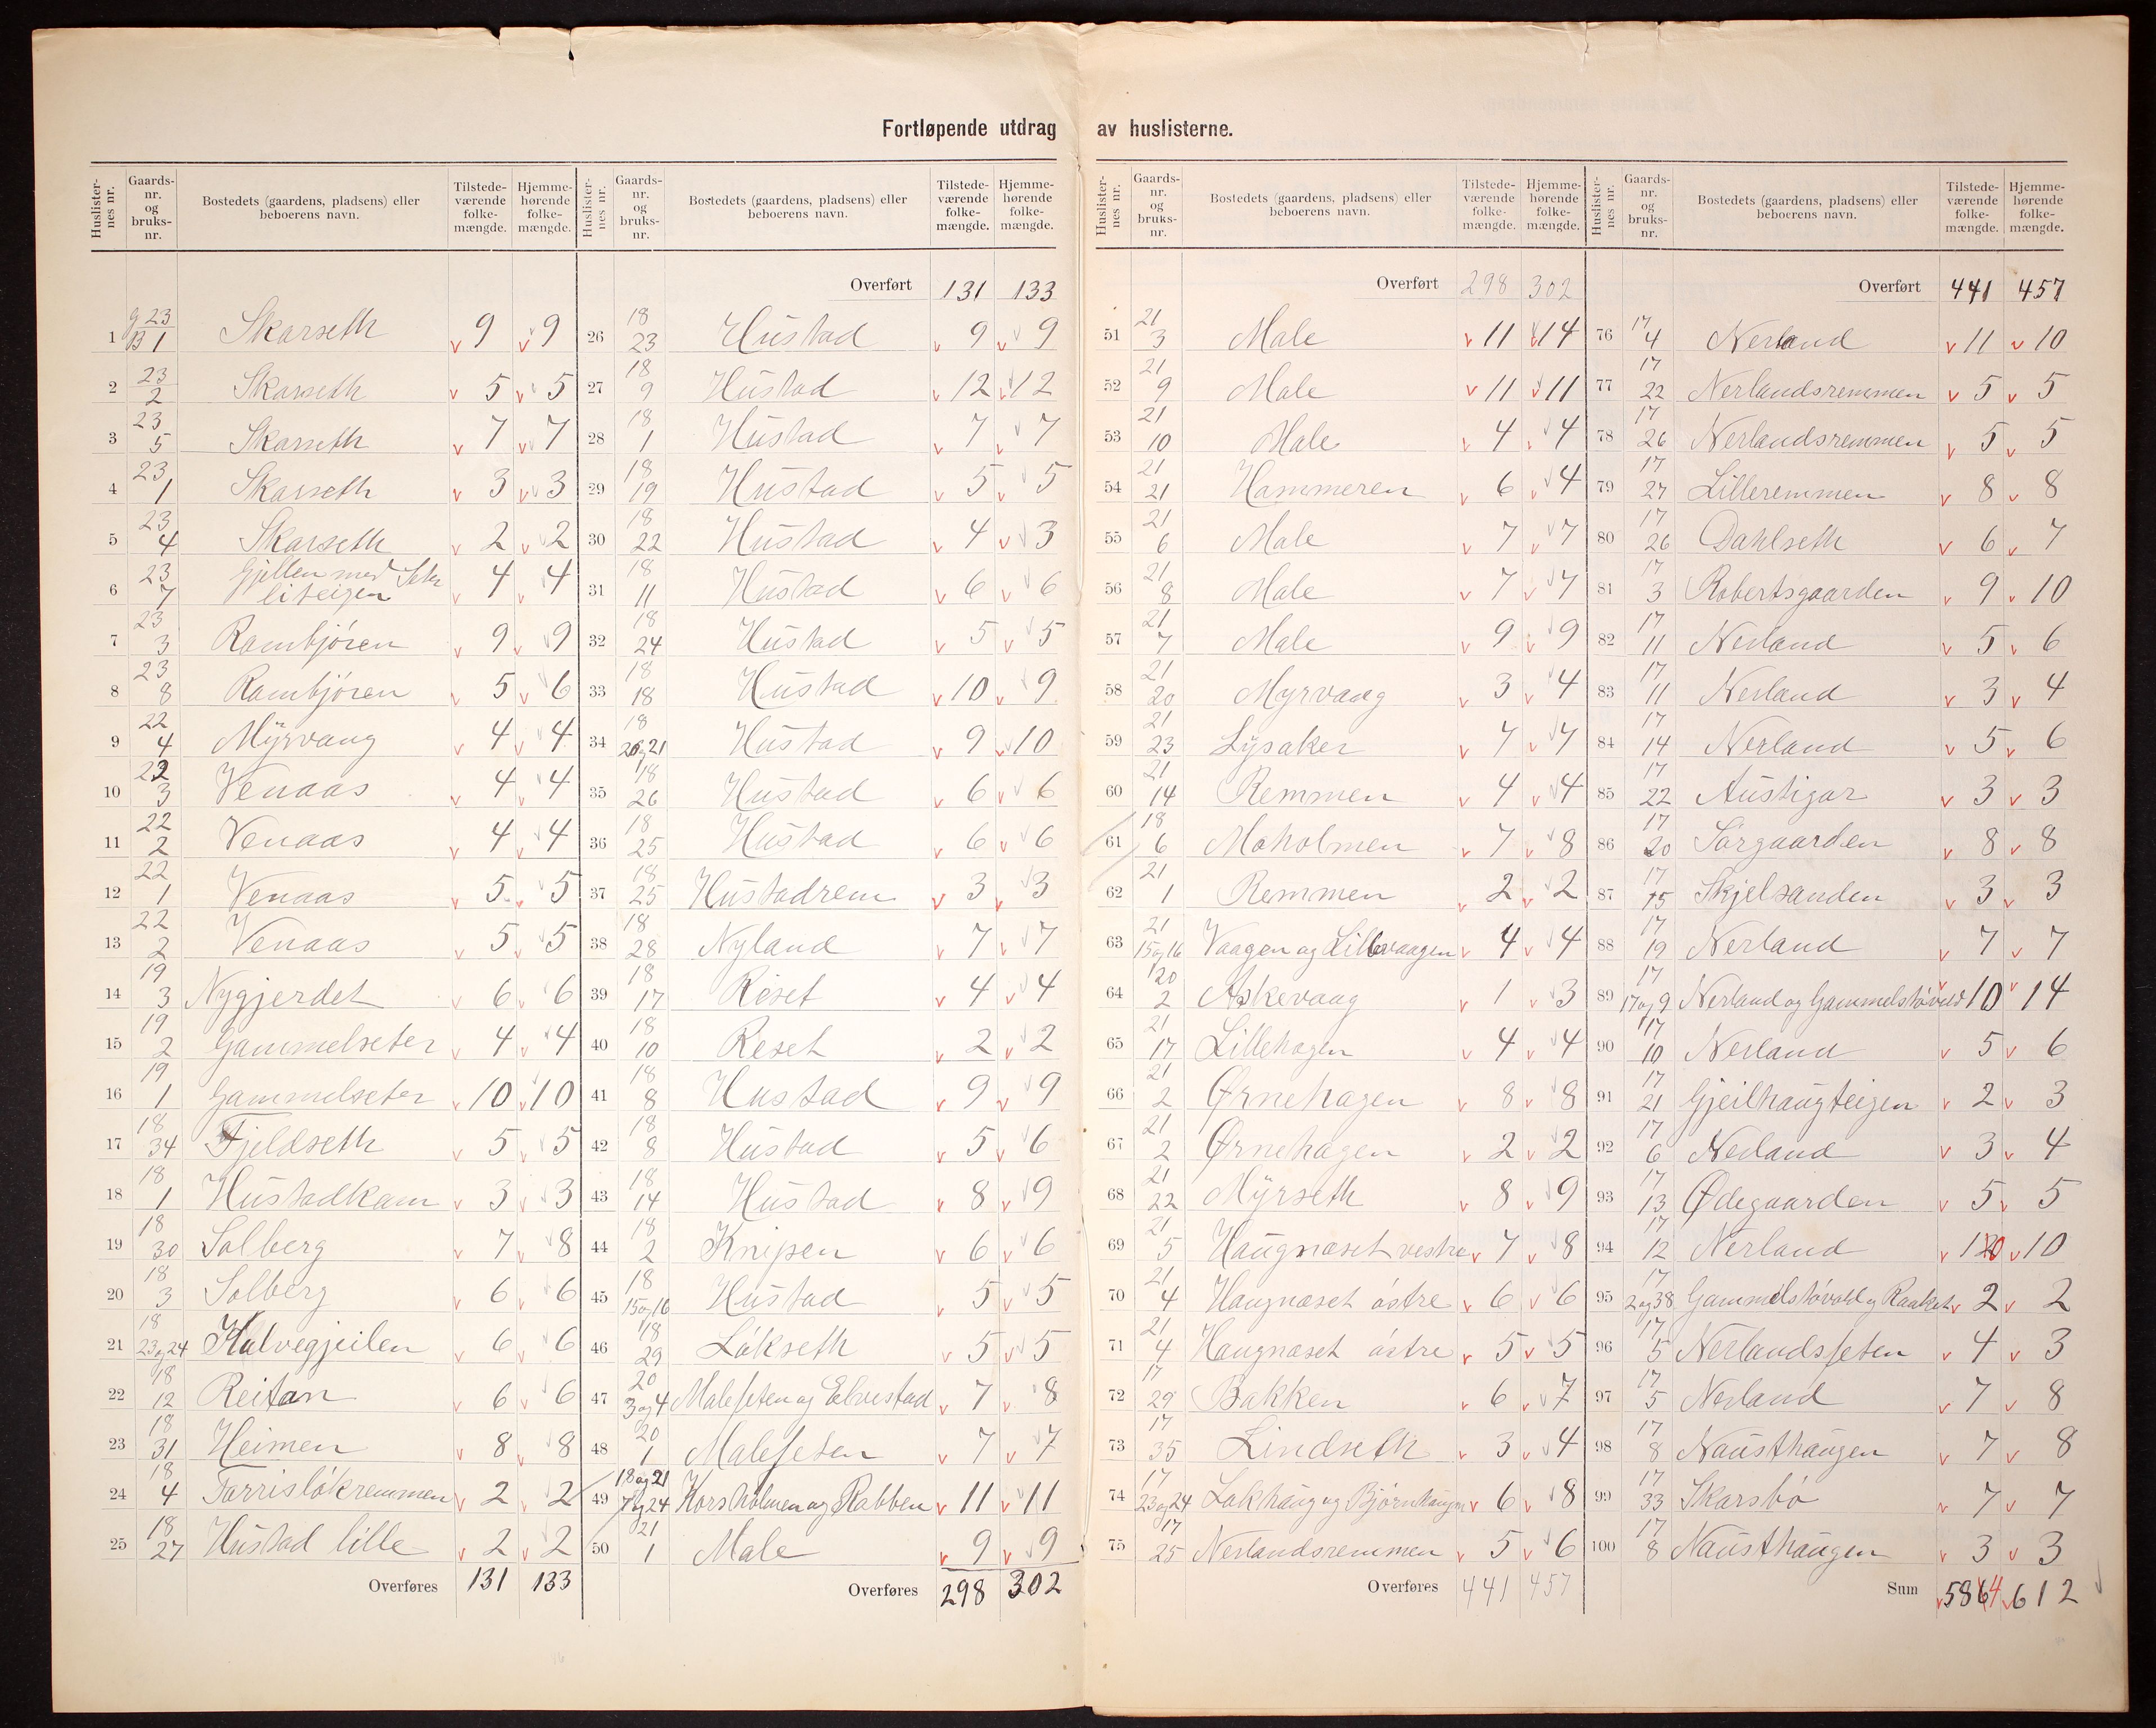 Fortløpende utdrag av huslisterne.
Huslister-nes nr. | Gaards-nr. og bruks-nr. | Bostedets (gaardens, pladsens) eller beboerens navn. | Tilstede-værende folke-mængde. | Hjemme-hørende folke-mængde.
1 g 23 B 1 Skarseth 9 9
2 23 2 Skarseth 5 5
3 23 5 Skarseth 7 7
4 23 1 Skarseth 3 3
5 23 4 Skarseth 2 2
6 23 7 Gjellen med liteigen 4 4
7 23 3 Rambjören 9 9
8 23 8 Rambjören 5 6
9 22 4 Myrvang 4 4
10 22 3 Venaas 4 4
11 22 2 Venaas 4 4
12 22 1 Venaas 5 5
13 22 2 Venaas 5 5
14 19 3 Nygjerdet 6 6
15 19 2 Gammelseter 4 4
16 19 1 Gammelseter 10 10
17 18 34 Fjeldseth 5 5
18 18 1 Hustadkam 3 3
19 18 30 Solberg 7 8
20 18 3 Solberg 6 6
21 18 23og24 Kalvegjeilen 6 6
22 18 12 Reitan 6 6
23 18 31 Heimen 8 8
24 18 4 Tarrislökremmen 2 2
25 18 27 Hustad lille 2 2
Overføres 131 133
Huslister-nes nr. | Gaards-nr. og bruks-nr. | Bostedets (gaardens, pladsens) eller beboerens navn. | Tilstede-værende folke-mængde. | Hjemme-hørende folke-mængde.
Overført 131 133
26 18 23 Hustad 9 9
27 18 9 Hustad 12 12
28 18 1 Hustad 7 7
29 18 19 Hustad 5 5
30 18 22 Hustad 4 3
31 18 11 Hustad 6 6
32 18 24 Hustad 5 5
33 18 18 Hustad 10 9
34 18 20og21 Hustad 9 10
35 18 26 Hustad 6 6
36 18 25 Hustad 6 6
37 18 25 Hustadrem 3 3
38 18 28 Nyland 7 7
39 18 17 Reset 4 4
40 18 10 Reset 2 2
41 18 8 Hustad 9 9
42 18 8 Hustad 5 6
43 18 14 Hustad 8 9
44 18 2 Knipen 6 6
45 18 15og16 Hustad 5 5
46 18 29 Lökseth 5 5
47 20 3og4 Maleseten og Elvestad 7 8
48 20 1 Maleseten 7 7
49 18og21 7og24 Korsholmen og Rabben 11 11
50 21 1 Male 9 9
Overføres 298 302
Huslister-nes nr. | Gaards-nr. og bruks-nr. | Bostedets (gaardens, pladsens) eller beboerens navn. | Tilstede-værende folke-mængde. | Hjemme-hørende folke-mængde.
Overført 298 302
51 21 3 Male 11 14
52 21 9 Male 11 11
53 21 10 Male 4 4
54 21 21 Hammeren 6 4
55 21 6 Male 7 7
56 21 8 Male 7 7
57 21 7 Male 9 9
58 21 20 Myrvaag 3 4
59 21 23 Lysaker 7 7
60 21 14 Remmen 4 4
61 18 6 Moholmen 7 8
62 21 1 Remmen 2 2
63 21 15og16 Vaagen og Lillevaagen 4 4
64 20 2 Askevaag 1 3
65 21 17 Lillehagen 4 4
66 21 2 Ørnehagen 8 8
67 21 2 Ørnehagen 2 2
68 21 22 Myrseth 8 9
69 21 5 Haugnæset vestre 7 8
70 21 4 Haugnæset östre 6 6
71 21 4 Haugnæset östre 5 5
72 17 29 Bakken 6 7
73 17 35 Lindseth 3 4
74 17 23og24 Lakhaug og Bjørnhaugen 6 8
75 17 25 Nerlandsremmen 5 6
Overføres 441 457
Huslister-nes nr. | Gaards-nr. og bruks-nr. | Bostedets (gaardens, pladsens) eller beboerens navn. | Tilstede-værende folke-mængde. | Hjemme-hørende folke-mængde.
Overført 441 457
76 17 4 Nerland 11 10
77 17 22 Nerlandsremmen 5 5
78 17 26 Nerlandsremmen 5 5
79 17 27 Lilleremmen 8 8
80 17 26 Dahlseth 6 7
81 17 3 Robertsgaarden 9 10
82 17 11 Nerland 5 6
83 17 11 Nerland 3 4
84 17 14 Nerland 5 6
85 17 22 Austigar 3 3
86 17 20 Sørgaarden 8 8
87 17 15 Skjelsanden 3 3
88 17 19 Nerland 7 7
89 17 17og9 Nerland og Gammelstövold 10 14
90 17 10 Nerland 5 6
91 17 21 Gjeilhaugteigen 2 3
92 17 6 Nerland 3 4
93 17 13 Ødegaarden 5 5
94 17 12 Nerland 10 10
95 17 2og38 Gammelstövold og 2 2
96 17 5 Nerlandsseten 4 3
97 17 5 Nerland 7 8
98 17 8 Nausthaugen 7 8
99 17 33 Skarsbö 7 7
100 17 8 Nausthaugen 3 3
Sum 5864 612